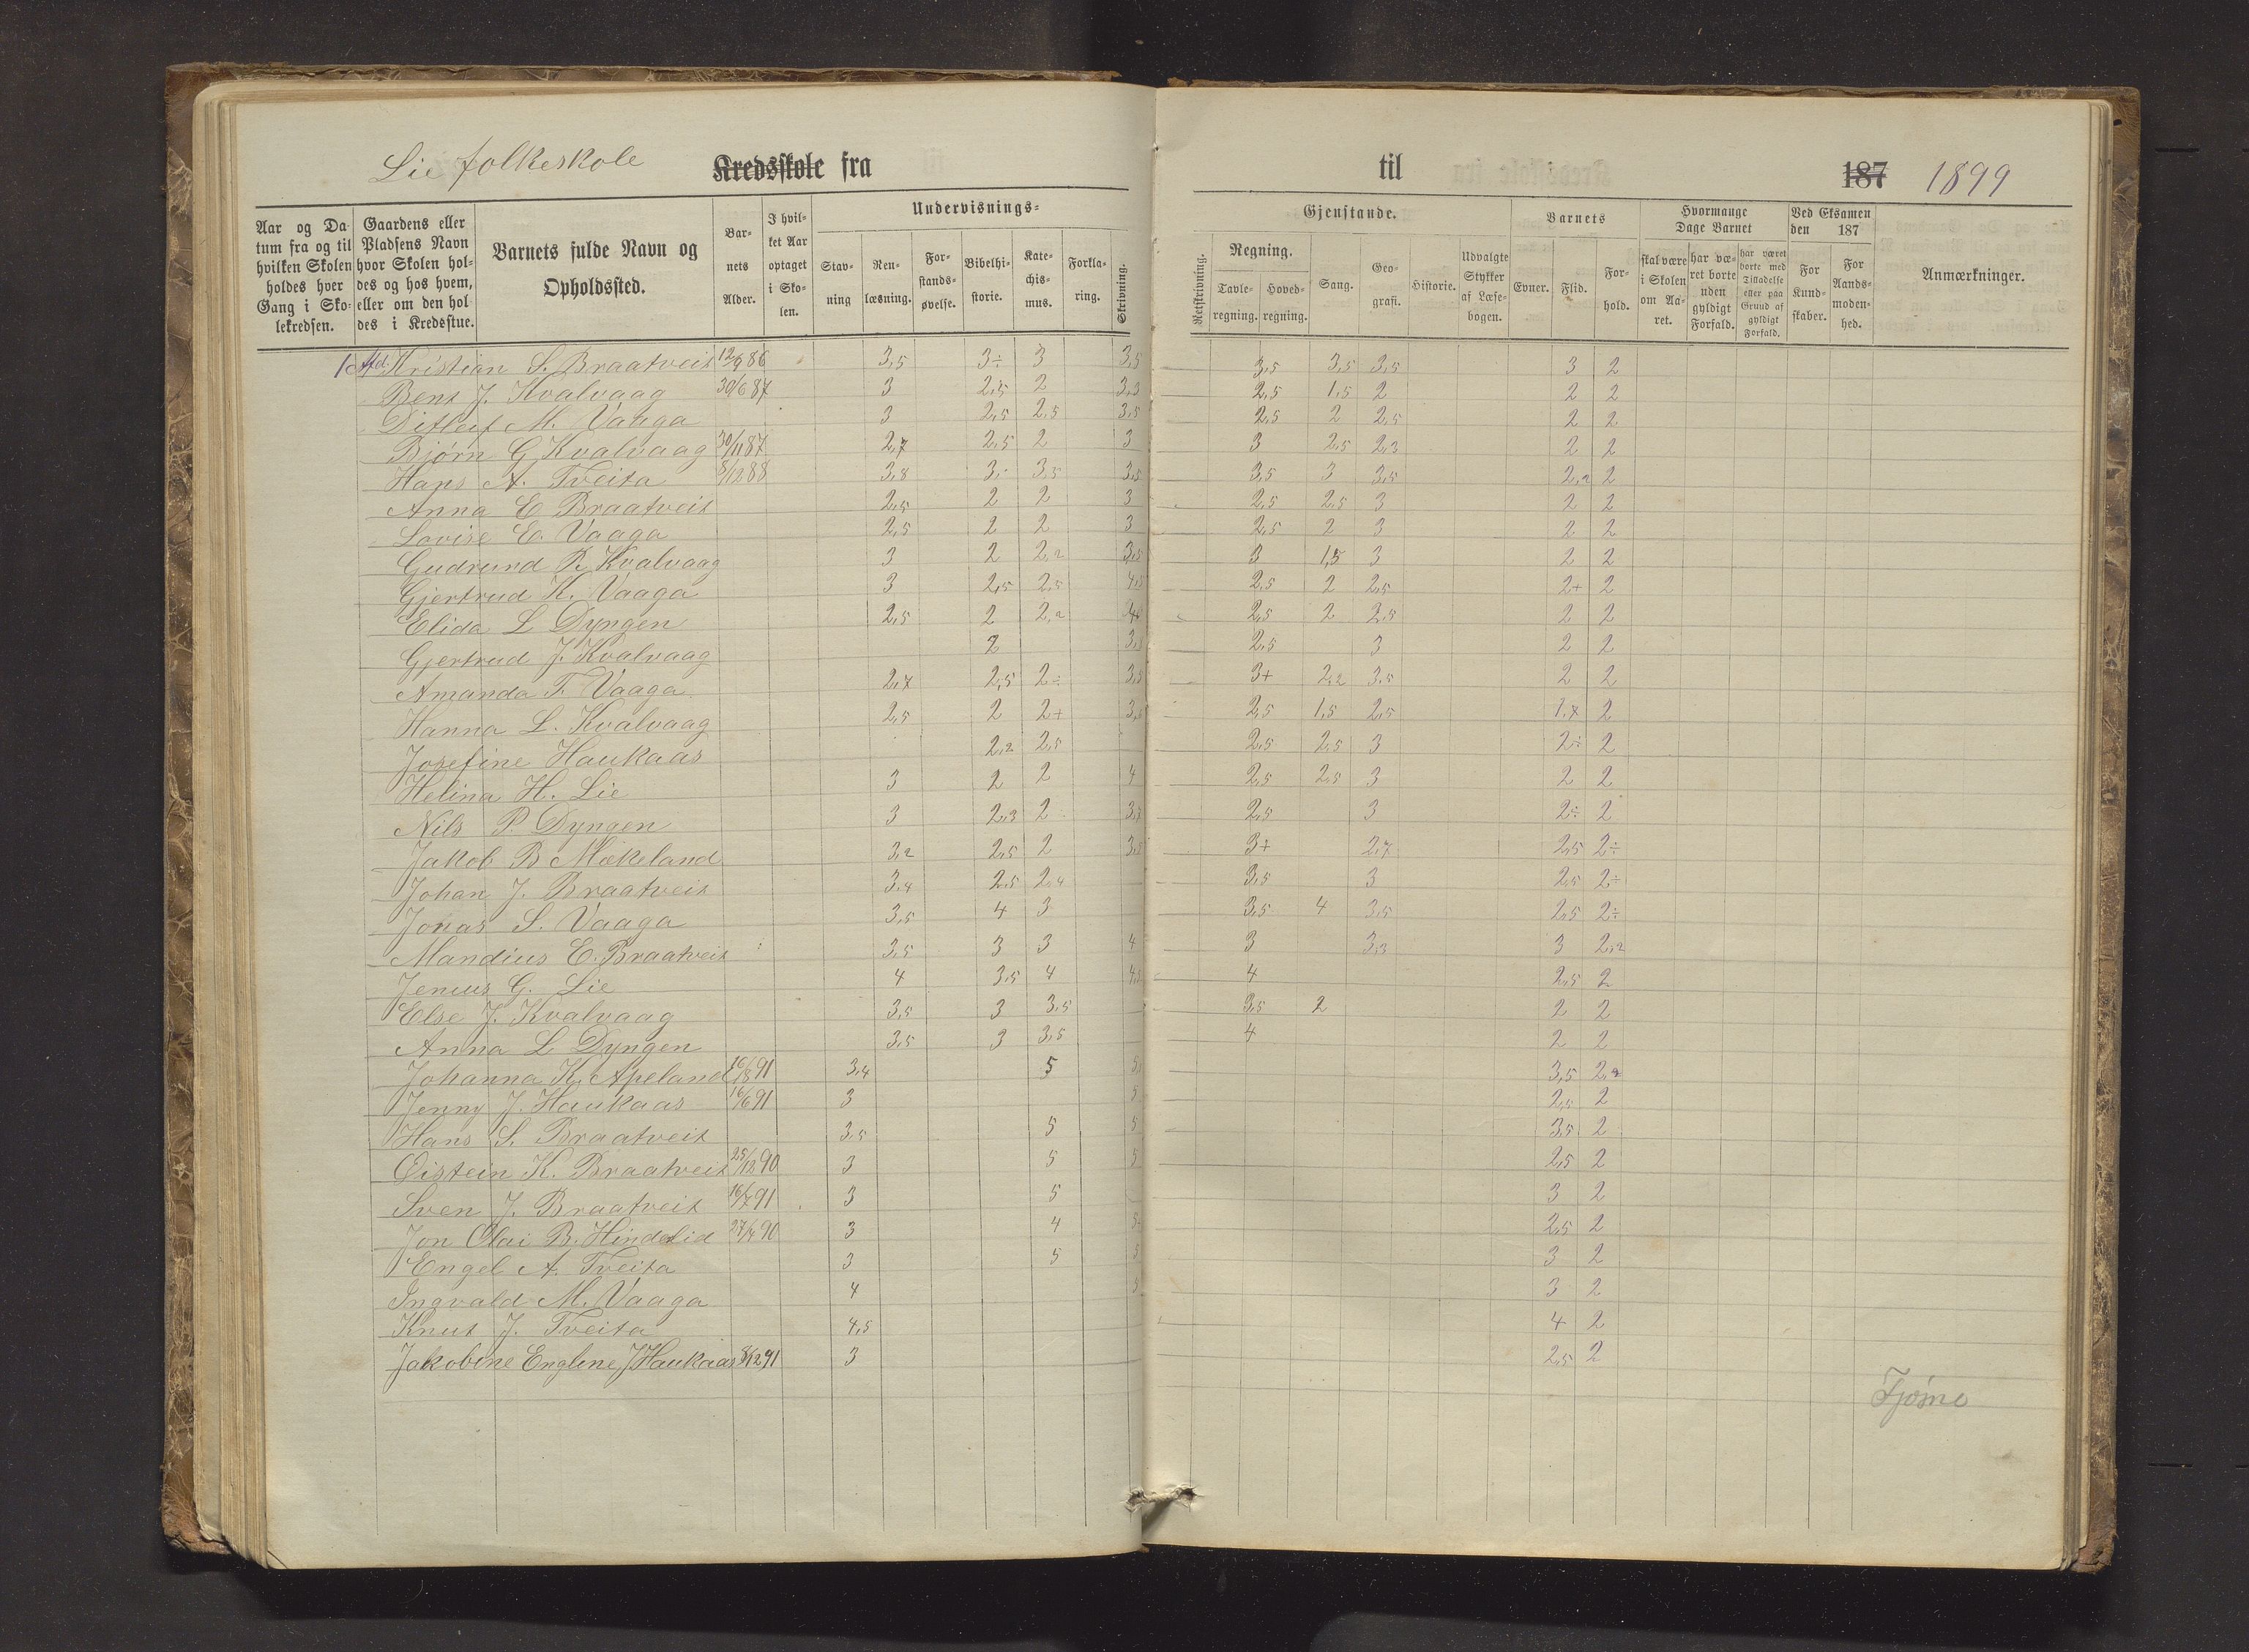 Lie folkeskole Kredsskole fra
til 187 1899
Aar og Da-
tum fra og til
hvilken Skolen
holdes hver
Gang i Sko-
lekredsen.
Gaardens eller
Pladsens Navn
hvor Skolen hol-
des og hos hvem,
eller om den hol-
des i Kredsstue.
Barnets fulde Navn og
Opholdssted.
Bar-
nets
Alder.
I hvil-
ket Aar
optaget
i Sko-
len.
Undervisnings-
Stav-
ning
Ren-
læsning.
For-
stands-
øvelse.
Bibelhi-
storie.
Kate-
chis-
mus.
Forkla-
ring.
Skrivning.
Gjenstande.
Retskrivning.
Regning.
Tavle-
regning.
Hoved-
regning.
Sang.
Geo-
grafi.
Historie.
Udvalgte
Stykker
af Læse-
bogen.
Barnets
Evner.
Flid.
For-
hold.
Hvormange
Dage Barnet
skal være
i Skolen
om Aa-
ret.
har væ-
ret borte
uden
gyldigt
Forfald.
har været
borte med
Tilladelse
eller paa
Grund af
gyldigt
Forfald.
Ved Eksamen
den 187
For
Kund-
skaber.
For
Aands-
moden-
hed.
Anmærkninger.
1 Afd. Kristian S. Braatveit 12/9 86 3,5 3÷ 3 3,5 3,5 3,5 3,5 3 2
Bent J. Kvalvaag 30/6 87 3 2,5 2 3,3 2,5 1,5 2 2 2
Ditleif M. Vaaga 3 2,5 2,5 3,5 2,5 2 2,5 2 2
Bjørn G Kvalvaag 30/11 87 2,7 2,5 2 3 3 2,5 2,3 2 2
Hans A. Tveita 8/12 88 3,8 3,- 3,5 3,5 3,5 3 3,5 2,2 2
Anna E Braatveit 2,5 2 2 3 2,5 2,5 3 2 2
Lovise E. Vaaga 2,5 2 2 3 2,5 2 3 2 2
Gudrund R. Kvalvaag 3 2 2,2 3,5 3 1,5 3 2 2
Gjertrud K. Vaaga 3 2,5 2,5 4,5 2,5 2 2,5 2+ 2
Elida L Dyngen 2,5 2 2,2 4 2,5 2 2,5 2 2
Gjertrud J. Kvalvaag 2 3, 2,5 3 2 2
Amanda T. Vaaga 2,7 2,5 2÷ 3,5 3+ 2,2 3,5 2 2
Hanna L. Kvalvaag 2,5 2 2+ 3, 2,5 1,5 2,5 1,7 2
Josefine Haukaas 2,2 2,5 2,5 2,5 3 2÷ 2
Helina H. Lie 3 2 2 4 2,5 2,5 3 2 2
Nils P. Dyngen 3 2,3 2 3,5 2,5 3 2÷ 2
Jakob B Mækeland 3,2 2,5 2 3,5 3+ 2,7 2,5 2÷
Johan J. Braatveit 3,4 2,5 2,4 3,5 3 2,5 2÷
Jonas S. Vaaga 3,5 4 3 3,5 4 3,5 2,5 2÷
Mandius E. Braatveit 3,5 3 3 4 3 3,3 3 2,2
Jenius G. Lie 4 3,5 4 4, 4 2,5 2
Else J. Kvalvaag 3,5 3 3,5 3,5 2 2 2
Anna L Dyngen 3,5 3 3,5 4 2 2
Johanna K. Apeland 91 3,4 5 5, 3,5 2,2
Jenny J. Haukaas 16/6 91 3 5 2,5 2
Hans S. Braatveit 3,5 5 5 3,5 2
Oistein K. Braatveit 25/12 90 3 5 5 2,5 2
Sven J. Braatveit 16/7 91 3 5 3 2
Jon Olai B. Hindelid 27/4 90 3 4 5 2,5 2
Engel A. Tveita 3 5 5 3 2
Ingvald M. Vaaga 4 5 3 2
Knut J. Tveita 4,5 4 2
Jakobine Engline J Haukaas 8/12 91 3 2,5 2
Tjøsno